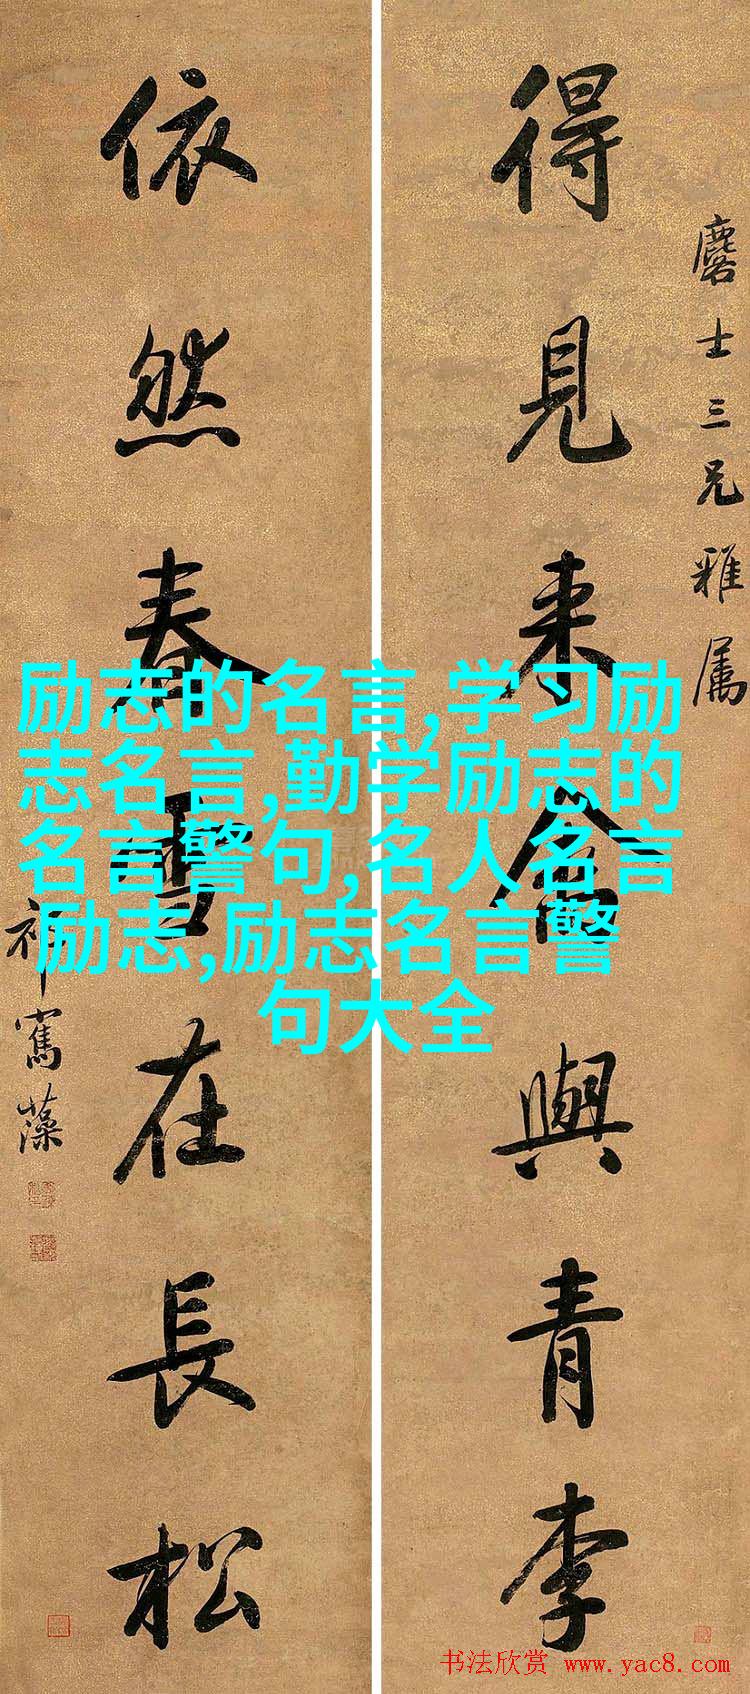 麐士三兄雅属
得見来禽與青李
依然春雪在長松
祁寯藻
励志的名言,学习励
志名言,勤学励志的
名言警句,名人名言
励志,励志名言警
句大全
书法欣赏 www.yac8.com